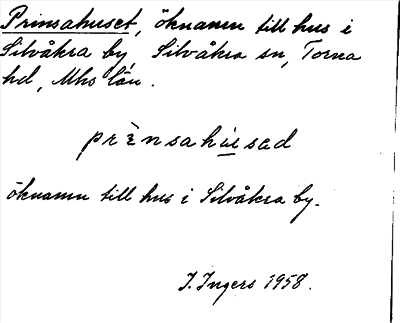 Prinsahuset, öknamn till hus i
Silvåkra by, Silvåkra sn, Torna
hd, Mhs län.
prìnsahúsad
öknamn till hus i Silvåkra by.
I. Ingers 1958.